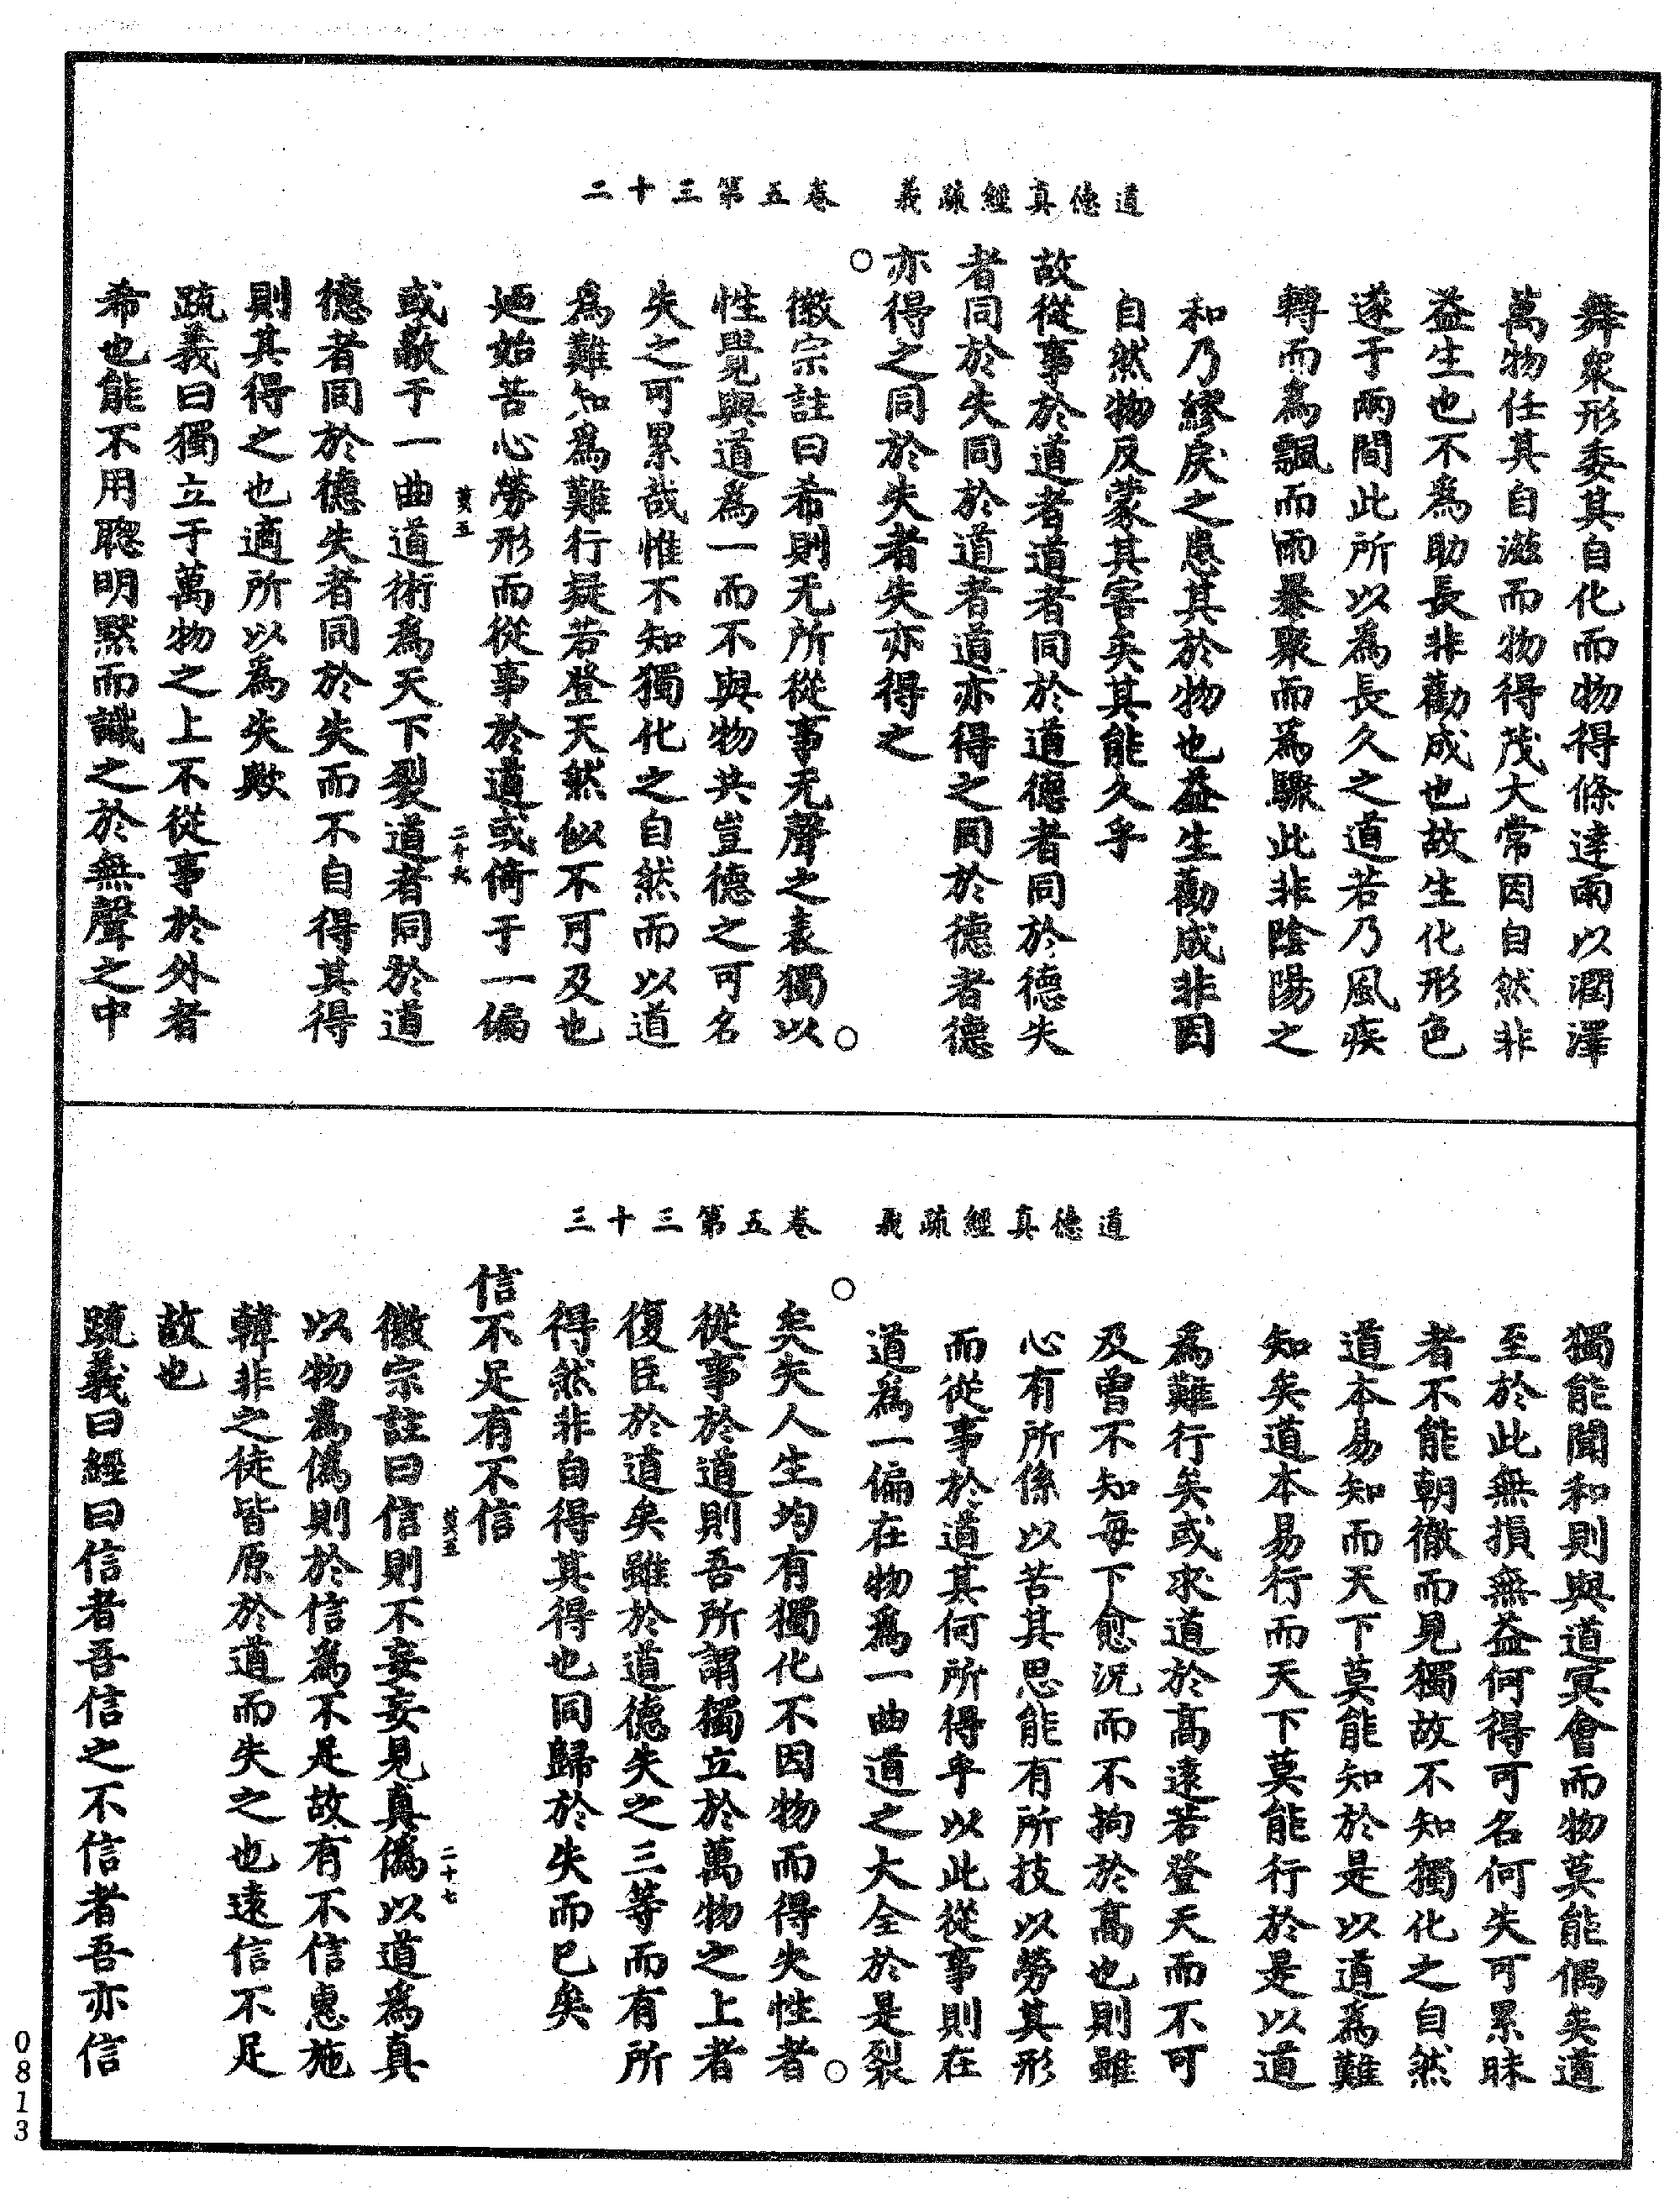 道德真經疏義　卷五第三十二
舞衆形委其自化而物得條達雨以潤澤
萬物任其自滋而物得茂大常因自然非
益生也不為助長非勸成也故生化形色
遂于兩間此所以為長久之道若乃風疾
轉而為飄而雨暴聚而為驟此非陰陽之
和乃繆戾之患其於物也益生勸成非因
自然物反蒙其害矣其能久乎
故從事於道者道者同於道德者同於德失
者同於失同於道者道亦得之同於德者德
亦得之同於失者失亦得之
徽宗註曰希則无所從事无聲之表獨以
性覺與道為一而不與物共豈德之可名
失之可累哉惟不知獨化之自然而以道
為難知為難行疑若登天然似不可及也
廼始苦心勞形而從事於道或倚于一偏
黃五　二十六
或蔽于一曲道術為天下裂道者同於道
德者同於德失者同於失而不自得其得
則其得之也適所以為失歟
疏義曰獨立于萬物之上不從事於外者
希也能不用聰明默而識之於無聲之中
道德真經疏義　卷五第三十三
獨能聞和則與道冥會而物莫能偶矣道
至於此無損無益何得可名何失可累昧
者不能朝徹而見獨故不知獨化之自然
道本易知而天下莫能知於是以道為難
知矣道本易行而天下莫能行於是以道
為難行矣或求道於高遠若登天而不可
及曾不知每下愈況而不拘於高也則雖
心有所係以苦其思能有所技以勞其形
而從事於道其何所得乎以此從事則在
道為一偏在物為一曲道之大全於是裂
矣失人生均有獨化不因物而得失性者
從事於道則吾所謂獨立於萬物之上者
復臣於道矣雖於道德失之三等而有所
得然非自得其得也同歸於失而已矣
信不足有不信
黃五　二十七
徽宗註曰信則不妄妄見真偽以道為真
以物為偽則於信為不是故有不信惠施
韓非之徒皆原於道而失之也遠信不足
故也
疏義曰經曰信者吾信之不信者吾亦信
0813